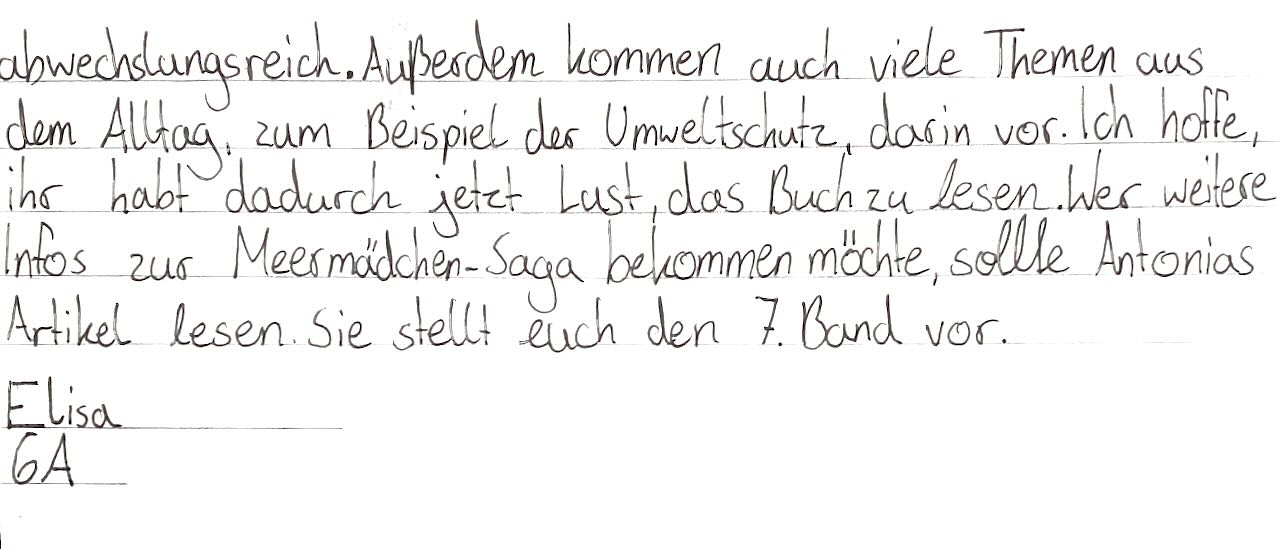 abwechslungsreich. Außerdem kommen auch viele Themen aus
dem Alltag, zum Beispiel der Umweltschutz, darin vor. Ich hoffe,
ihr habt dadurch jetzt Lust, das Buch zu lesen. Wer weitere
Infos zur Meermädchen-Saga bekommen möchte, sollte Antonias
Artikel lesen. Sie stellt euch den 7. Band vor.
Elisa
6A